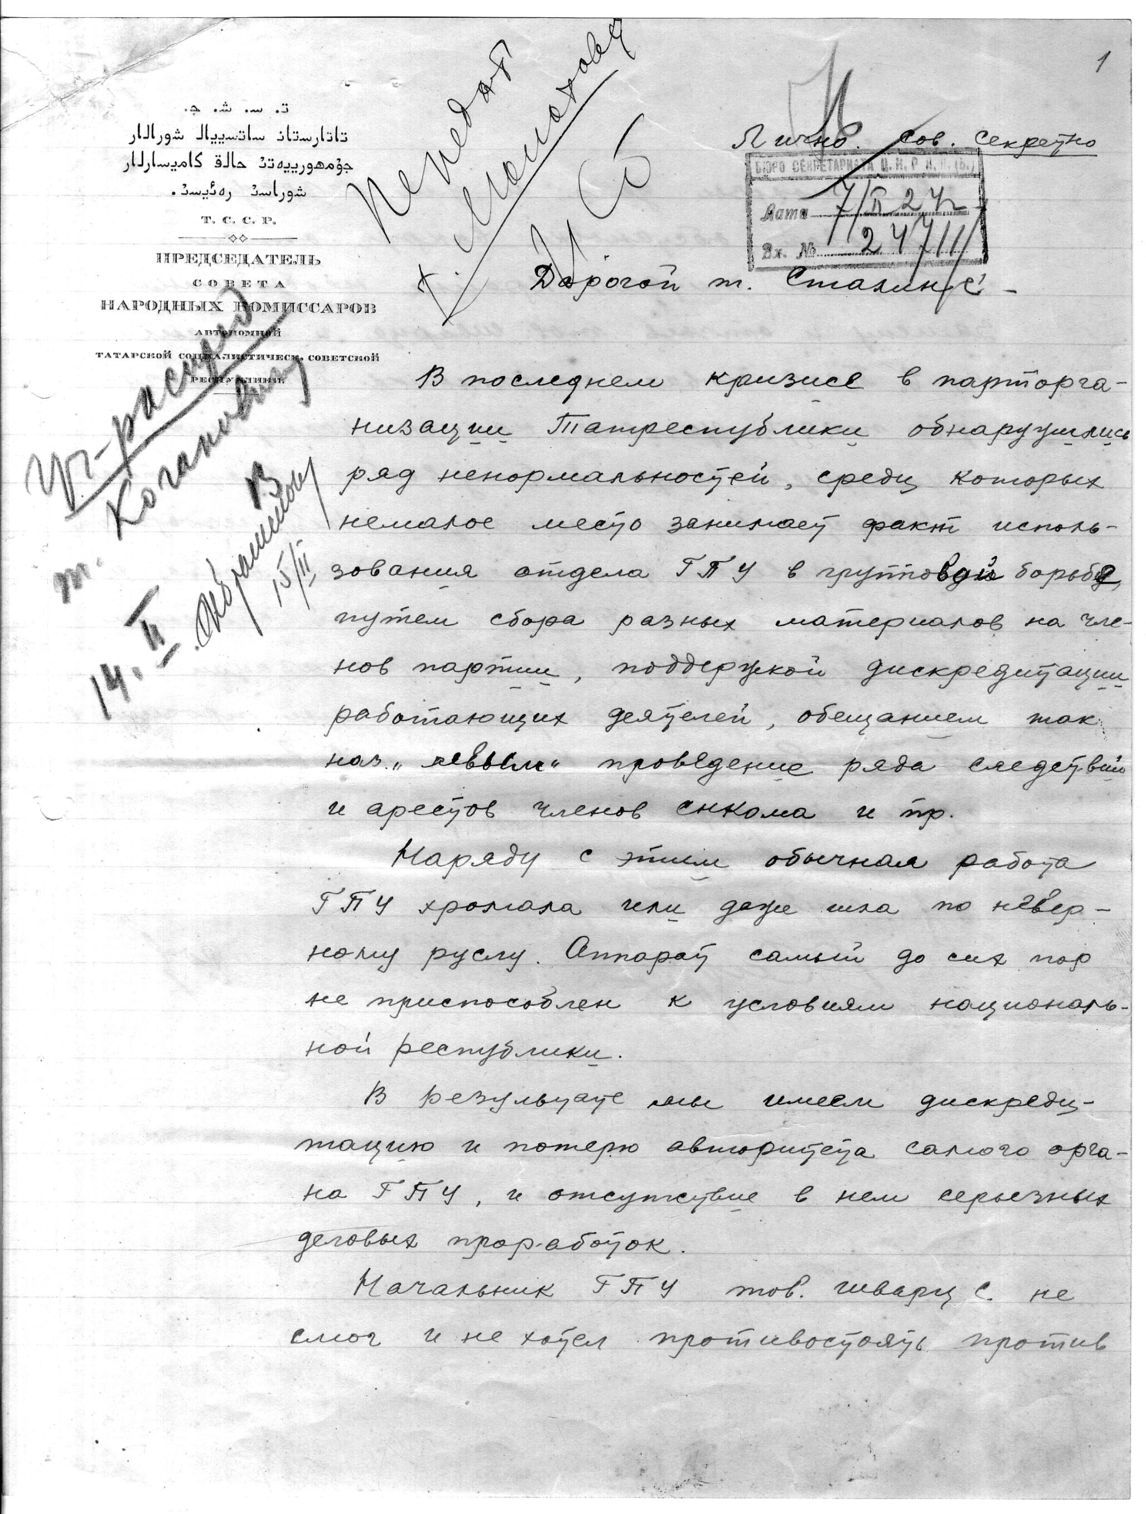 1
ت. س. ش. ج.
تاتارستان ساتسييال شورالار
جۇمهورييەتن حالق كاميسارلار
شوراسن رەئيسن.
Т. С. С. Р.
ПРЕДСЕДАТЕЛЬ
СОВЕТА
НАРОДНЫХ КОМИССАРОВ
АВТОНОМНОЙ
ТАТАРСКОЙ СОЦИАЛИСТИЧЕСК. СОВЕТСКОЙ
РЕСПУБЛИКИ
Передат
т. Молотову
Лично. Сов. секретно
БЮРО СЕКРЕТАРИАТА Ц. К. Р. К. П. (Б.)
Дата 7/II 24 г.
Вх. № 2471/
Уч-распред
т. Кагановичу
14. II
15/II
Дорогой т. Сталин
В последнем кризисе в парторга-
низации Татреспублики обнаружились
ряд ненормальностей, среди которых
немалое место занимает факт исполь-
зования отдела ГПУ в групповой борьбе,
путем сбора разных материалов на чле-
нов партии, поддержкой дискредитации
работающих деятелей, обещанием так
наз. „левым“ проведение ряда следствий
и арестов членов снкома и пр.
Наряду с этим обычная работа
ГПУ хромала или даже шла по невер-
ному руслу. Аппарат самый до сих пор
не приспособлен к условиям националь-
ной республики.
В результате мы имеем дискреди-
тацию и потерю авторитета самого орга-
на ГПУ, и отсутствие в нем серьезных
деловых проработок.
Начальник ГПУ тов. Шварц С. не
смог и не хотел противостоять против